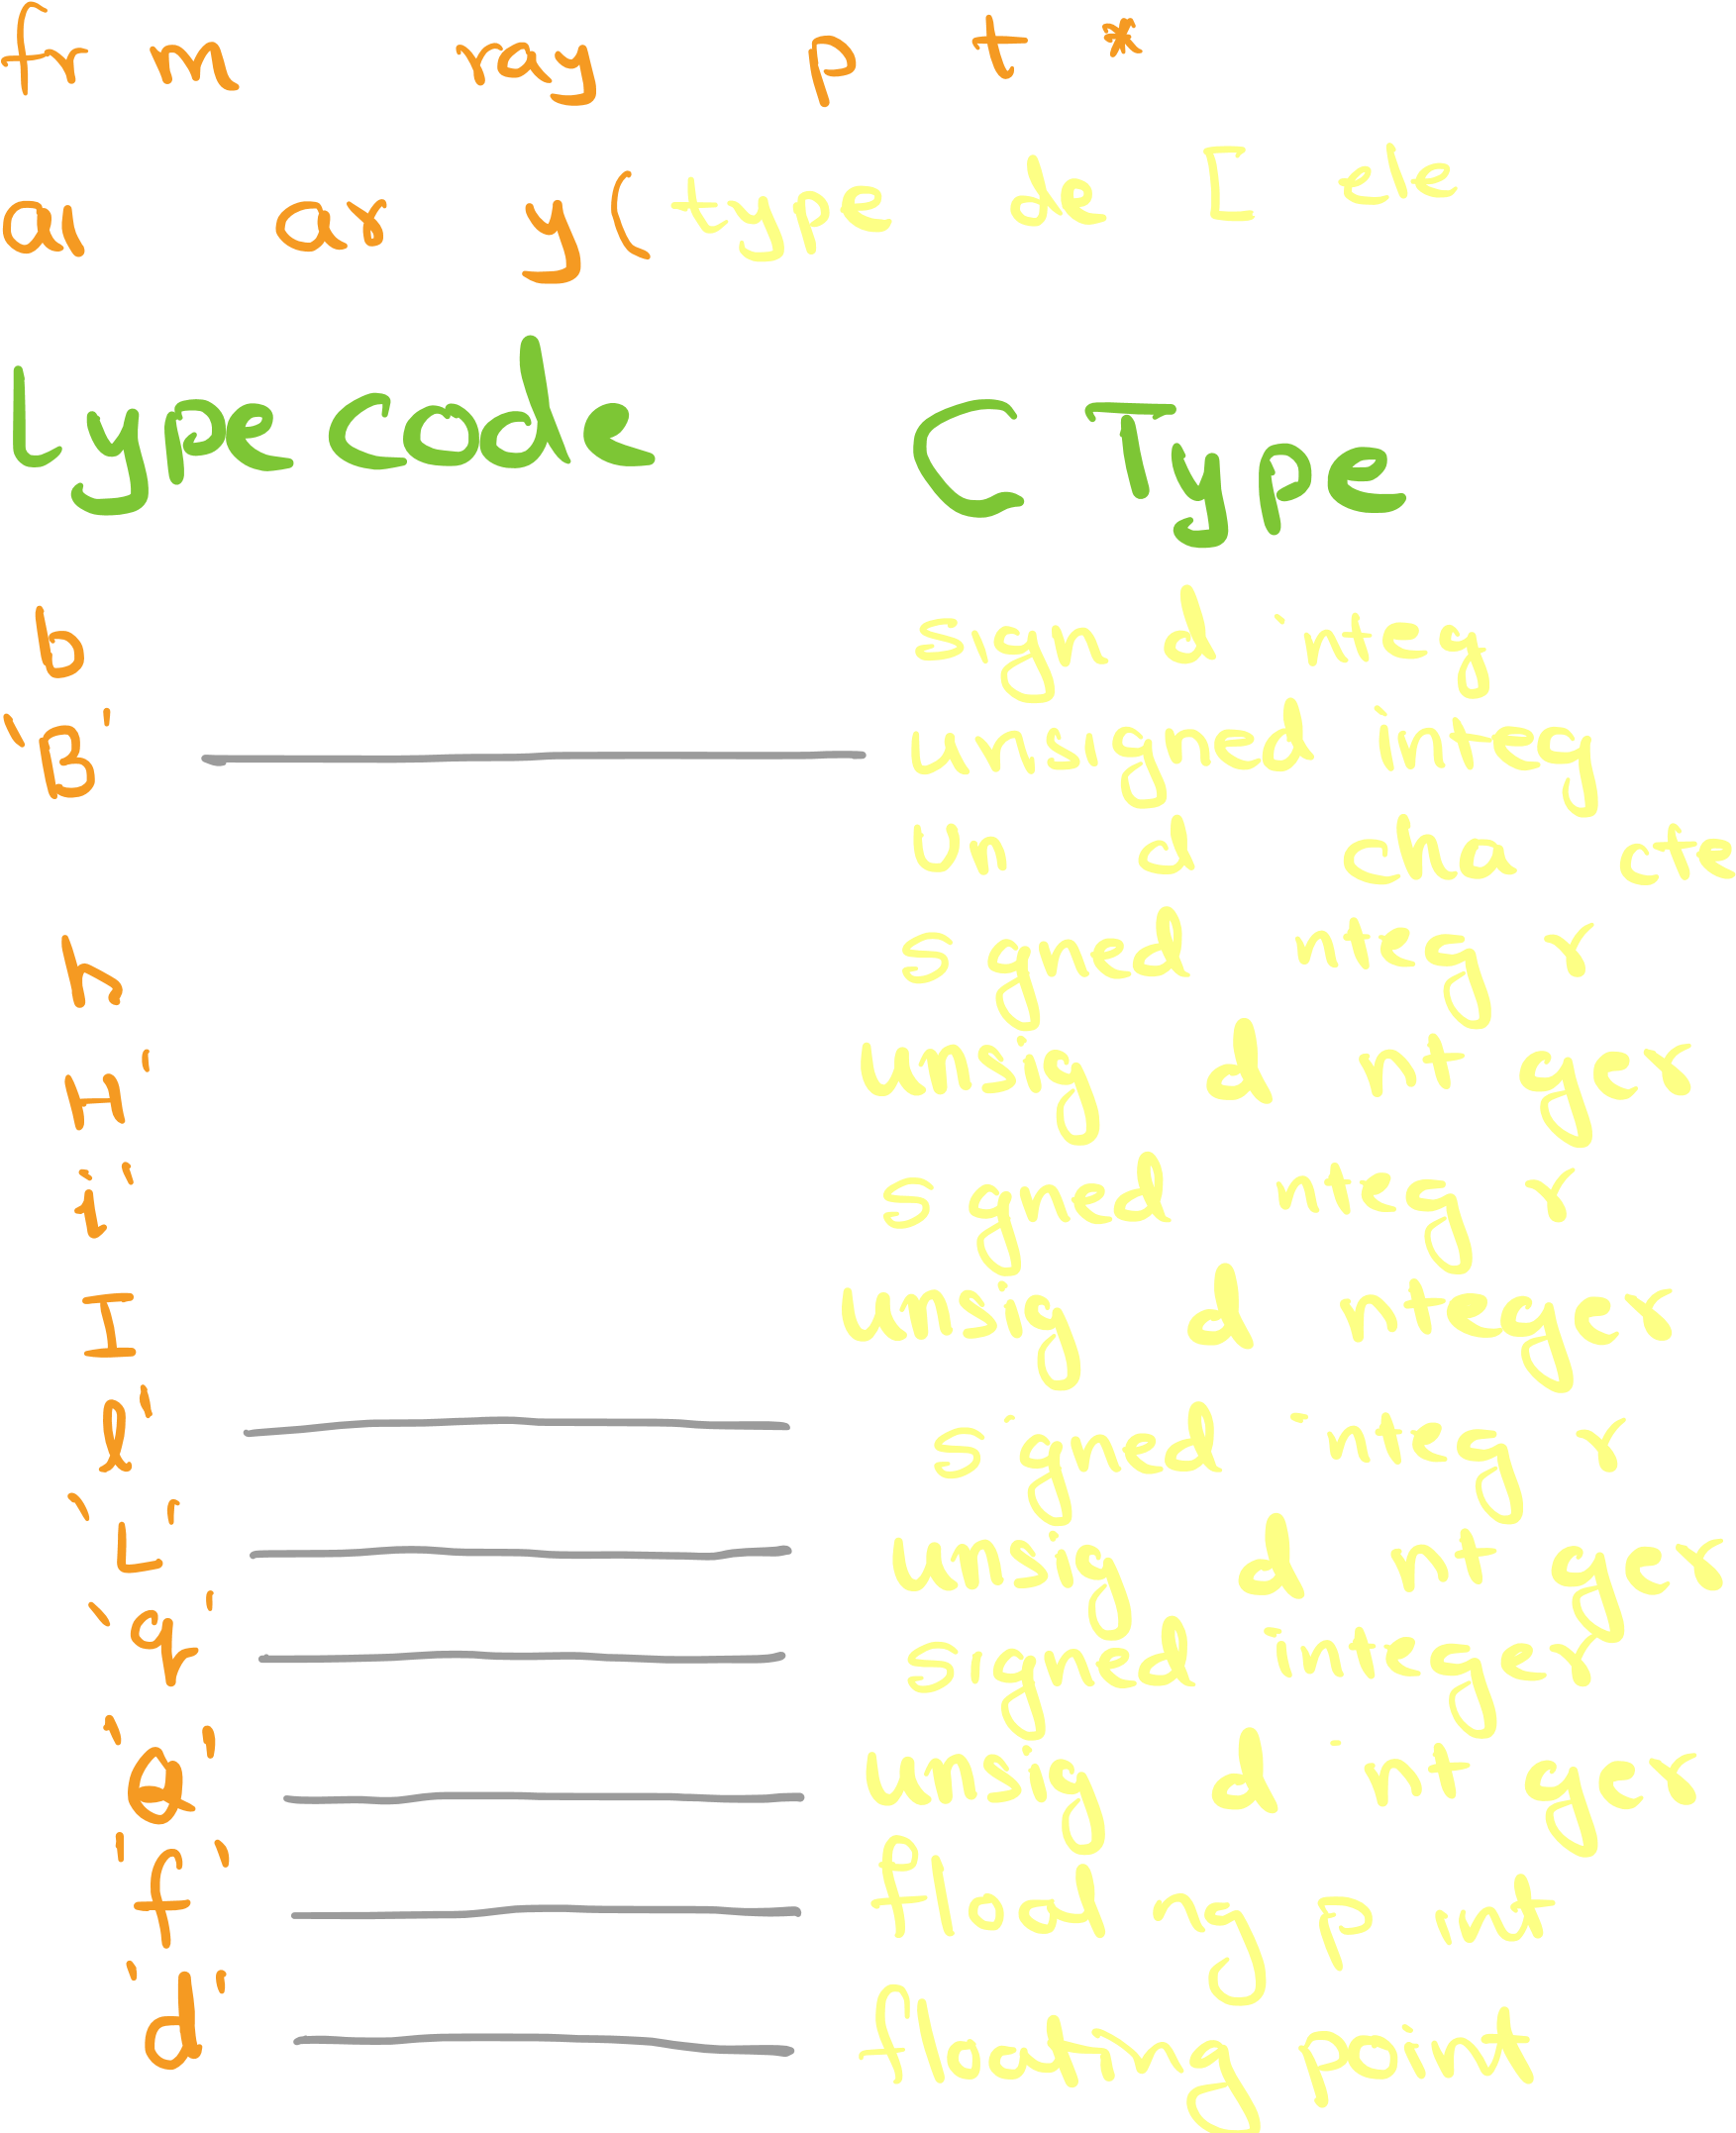 fr m ray p t *
a ar y( type de [ ele
typecode C Type
b sign d integ
'B' unsigned integ
un d cha cte
h s gned nteg r
H' unsig d nt ger
i' s gned nteg r
I unsig d nteger
l' signed integ r
'L' unsig d nt ger
'q' signed integer
'Q' unsig d int ger
'f' float ng p int
'd' floating point